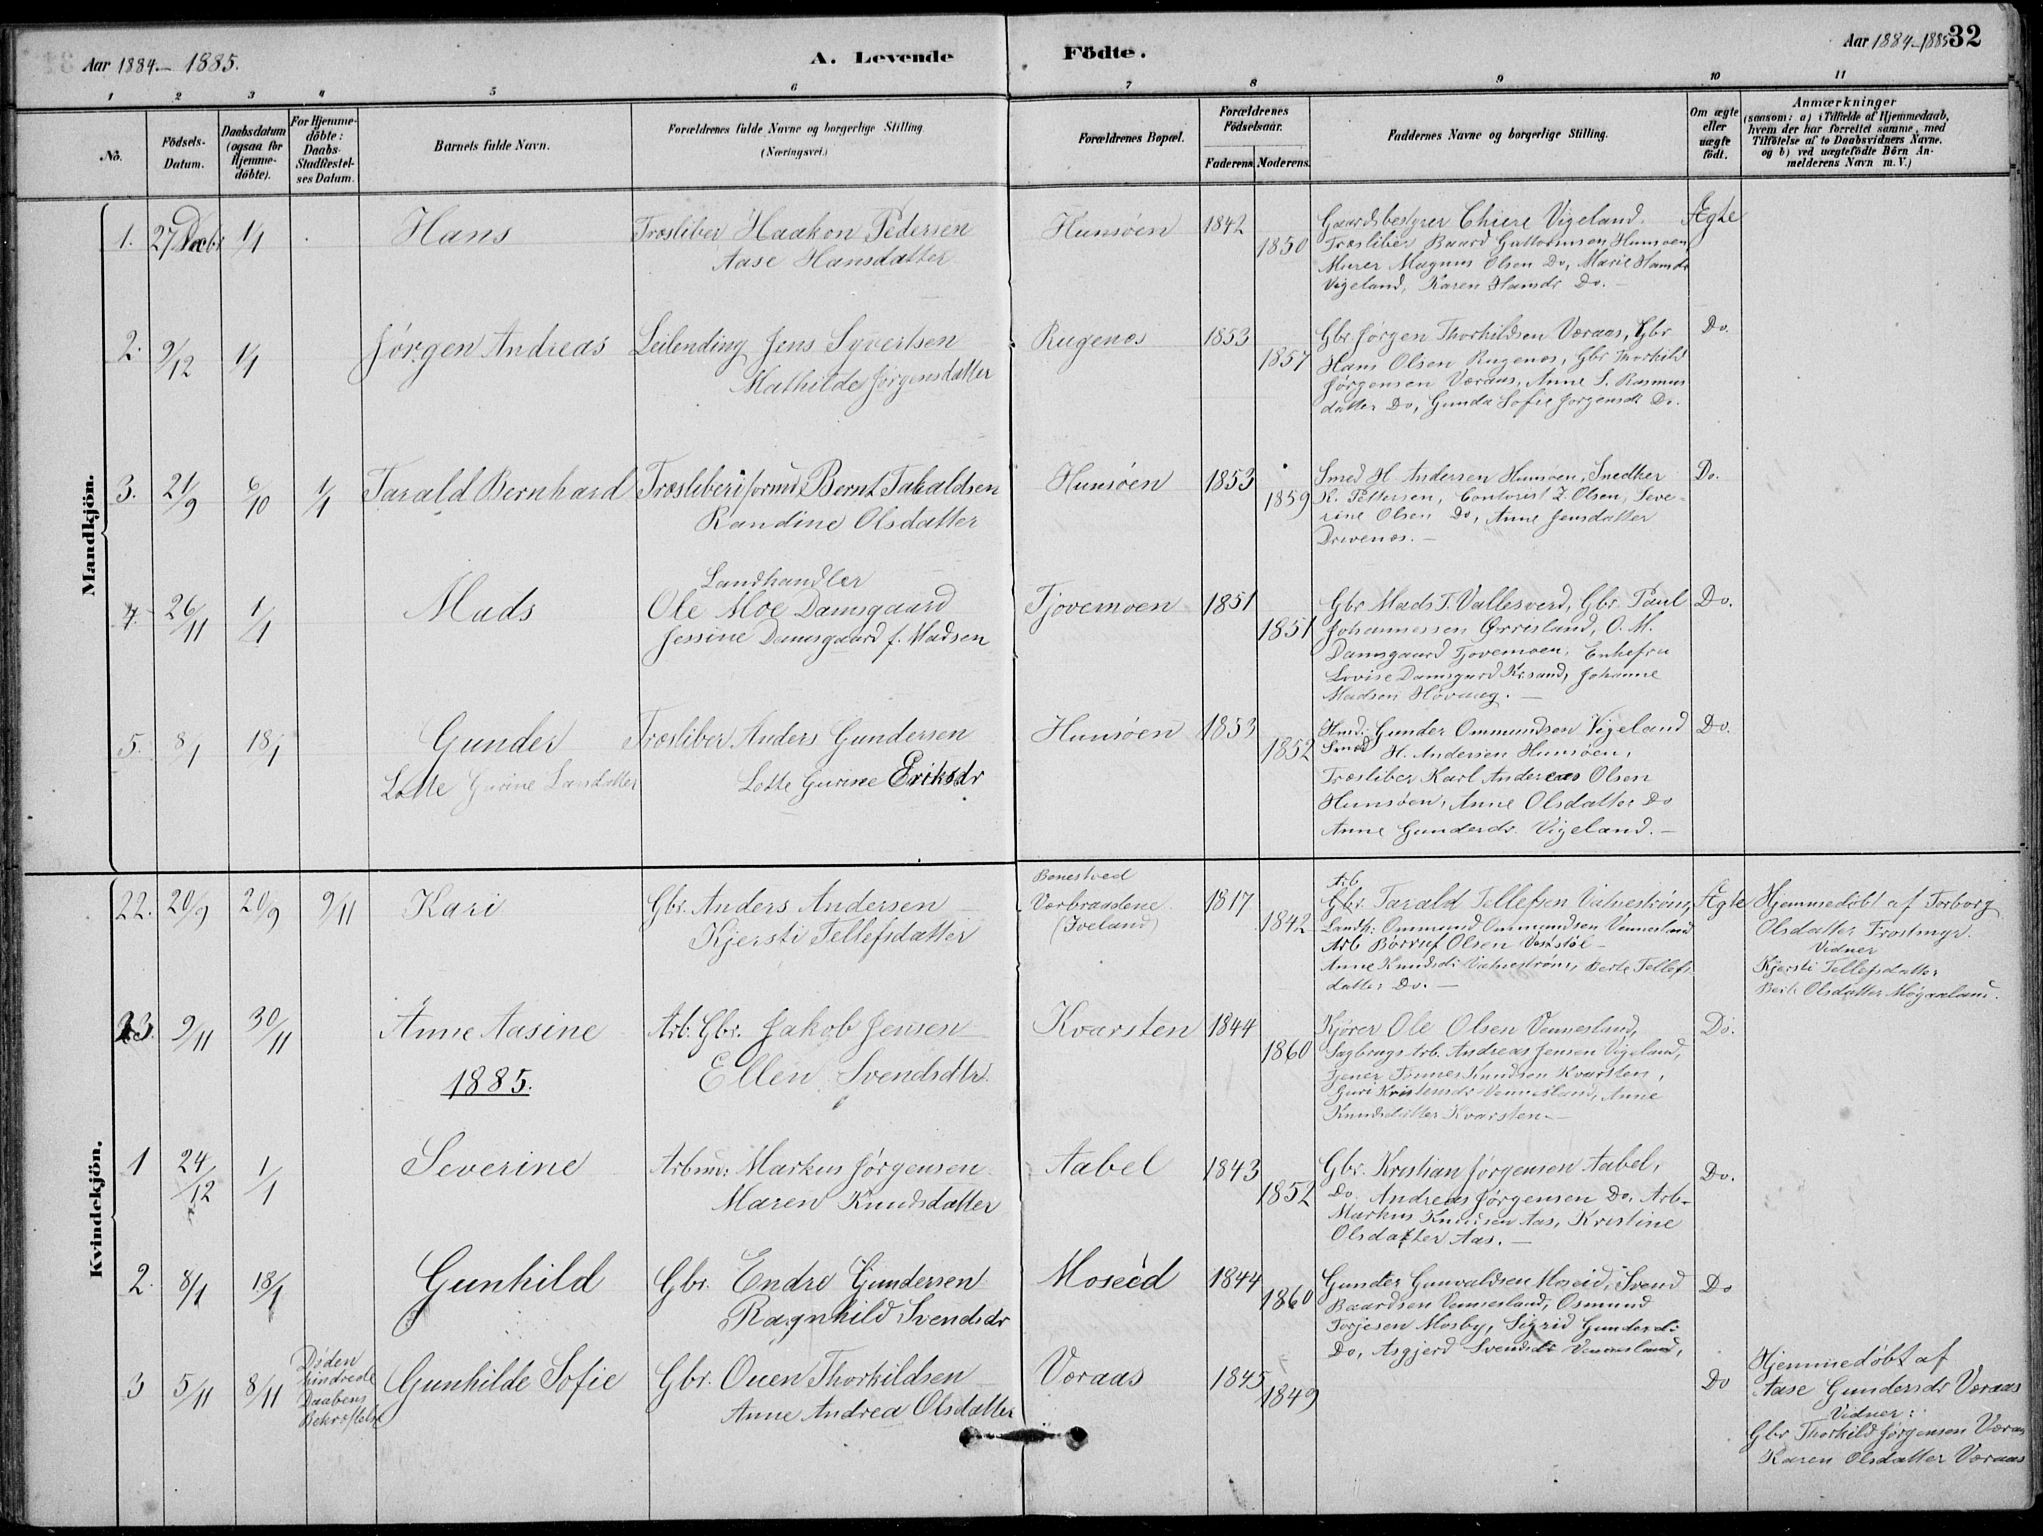 Aar 1884 – 1885.
A. Levende Födte.
Aar 1884–1885
32
1 2 3 4 5 6 7 8 9 10 11
No.
Födsels-Datum.
Daabsdatum (ogsaa for Hjemme-döbte).
For Hjemme-döbte: Daabs-Stadfæstel-ses Datum.
Barnets fulde Navn.
Forældrenes fulde Navne og borgerlige Stilling. (Næringsvei.)
Forældrenes Bopæl.
Forældrenes Födselsaar.
Faderens. Moderens.
Faddernes Navne og borgerlige Stilling.
Om ægte eller uægte födt.
Anmærkninger
(saasom: a) i Tilfælde af Hjemmedaab,
hvem der har forrettet samme, med
Tilföielse af to Daabsvidners Navne,
og b) ved uægtefödte Börn An-
melderens Navn m. V.)
Mandkjön.
1. 27 Decbr 1/1 Hans
Træsliber Haakon Pedersen
Aase Hansdatter
Hunsøen 1842 1850
Gaardsbestyrer Vigeland.
Træsliber Baard Guttormsen Hunsøen
Murer Magnus Olsen Do, Marie Hansdr
Vigeland, Karen Hansdr Do. –
Ægte
2. 9/12 1/1 Jørgen Andreas
Leilending Jens Syvertsen
Mathilde Jørgensdatter
Rugenes 1853 1857
Gbr. Jørgen Thorkildsen Væraas, Gbr
Hans Olsen Rugenes, Gbr Thorkild
Jørgensen Væraas, Anne S. Rasmus
datter Do, Gunda Sofie Jørgensdt Do.
Do.
3. 21/9 6/10 1/1 Tarald Bernhard
Træsliberiformd. Bernt Taraldsen
Randine Olsdatter
Hunsøen 1853 1859
Smed H. Andersen Hunsøen, Snedker
K. Pettersen, Contorist Z. Olsen, Seve-
rine Olsen Do, Anne Jensdatter
Drivenes. –
Do.
4. 26/11 1/1 Mads
Landhandler
Ole Moe Damsgaard
Jessine Damsgaard f. Madsen
Tjovemoen 1851 1851
Gbr Mads T. Vallesverd, Gbr. Paul
Johannessen Ørrisland, O. M.
Damsgaard Tjovemoen, Enkefru
Lovise Damsgard Krsand, Johanne
Madsen Høvaag. –
Do.
5. 8/1 18/1 Gunder
Træsliber Anders Gundersen
Lotte Gurine Eriksdr
Lotte Gurine
Hunsøen 1853 1852
Hmd: Gunder Ommundsen Vigeland
Smed H. Andersen Hunsøen,
Træsliber Karl Andereas Olsen
Hunsøen, Anne Olsdatter Do
Anne Gunderds. Vigeland. –
Do.
Kvindekjön.
22. 20/9 20/9 9/11 Kari
Gbr. Anders Andersen
Kjersti Tellefsdatter
Bonestved
Vorbrandene
(Iveland)
1817 1842
Arb
Gbr. Tarald Tellefsen Vatnestrøm,
Landh: Ommund Ommundsen Vennesland
Arb Børruf Olsen
Anne Knudsdr Vatnestrøm, Berte Tellefs
datter Do. –
Ægte
Hjemmedøbt af Torborg
Olsdatter Frostmyr.
Vidner
Kjersti Tellefsdatter
Berte Olsdatter
23. 9/11 30/11 Anne Aasine
Arb. Gbr. Jakob Jensen
Ellen Svendsdtr.
Kvarsten 1844 1860
Kjører Ole Olsen Vennesland,
Sagbrugs Arb. Andreas Jensen Vigeland,
Tjener Tønnes Knudson Kvarsten,
Guri Kristensdr Vennesland, Anne
Knudsdatter Kvarsten. –
Do.
1885.
1 24/12 1/1 Severine
Arbm: Markus Jørgensen
Maren Knudsdatter
Aabel 1843 1852
Gbr. Kristian Jørgensen Aabel,
Do. Andreas Jørgensen Do. Arb-
Markus Knudsen Aas, Kristine
Olsdatter Aas. –
Do.
2. 8/1 18/1 Gunhild
Gbr. Endre Gundersen
Ragnhild Svendsdr
Moseid 1844 1860
Gunder Gunvaldsen Moseid, Svend
Baardsen Vennesland, Osmund
Torjesen Mosby, Sigrid Gundersdr
Do, Asgjerd Svendsdr Vennesland,
Do
3 5/11 8/11
Døden
hindrede
Daabens
Bekræftelse
Gunhilde Sofie
Gbr. Ouen Thorkildsen
Anne Andrea Olsdatter
Voraas 1845 1849
Do
Hjemmedøbt af
Aase Gundersdr Væraas
Vidner:
Gbr Thorkild Jørgensen Væraas
Karen Olsdatter Væraas